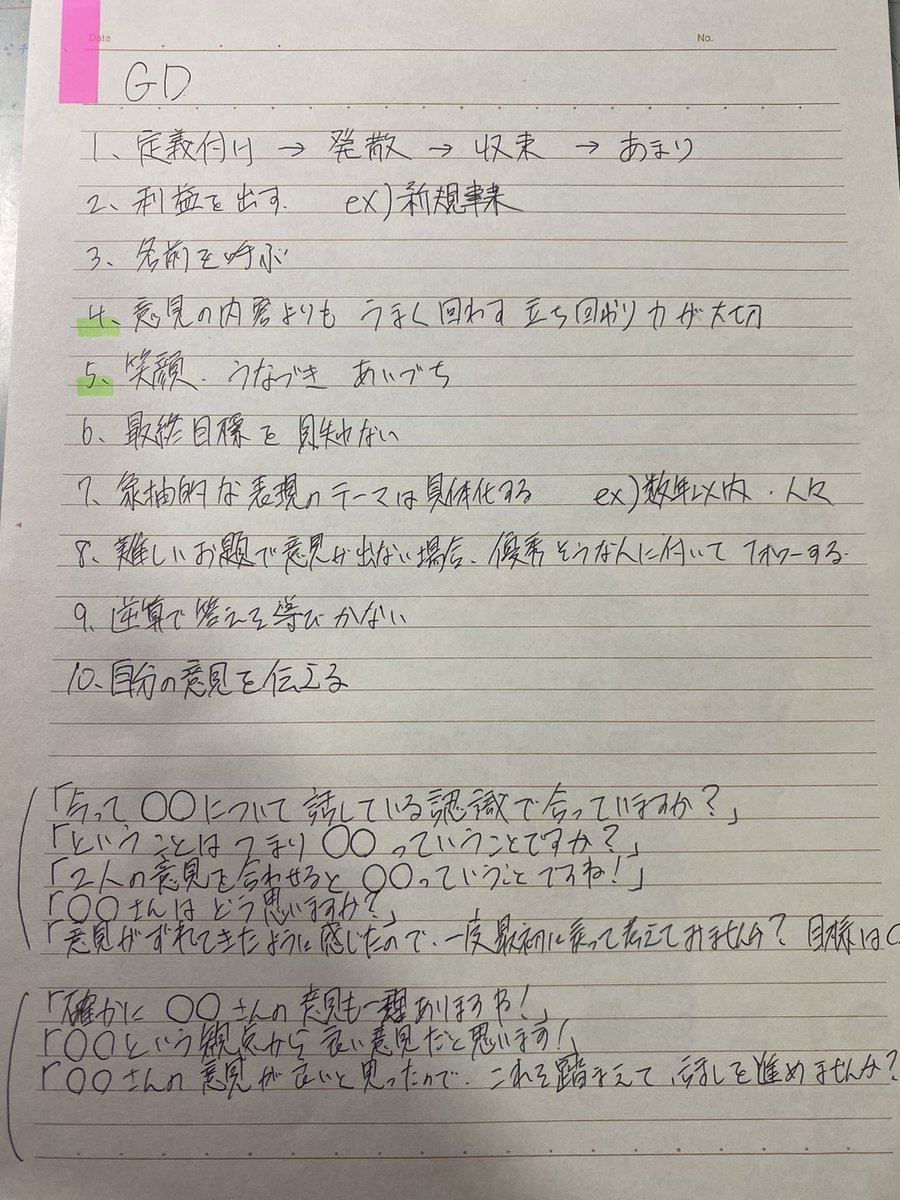 Date
No.
GD
1、定義付け → 発散 → 収束 → あまり
2、利益を出す. ex)新規事業
3、名前を呼ぶ
4、意見の内容よりも うまく回わす 立ち回わり力が大切
5、笑顔. うなづき あいづち
6、最終目標を見失わない
7、象抽的な表現のテーマは具体化する ex)数年以内・人々
8、難しいお題で意見が出ない場合、優秀そうな人に付いて フォローする.
9、逆算で答えを導びかない
10、自分の意見を伝える
「今って〇〇について話している認識で合っていますか？」
「ということはつまり〇〇っていうことですか？」
「2人の意見を合わせると〇〇っていうことですね！」
「〇〇さんはどう思いますか？」
「意見がずれてきたように感じたので、一度最初に戻って考えてみませんか？ 目標は
「確かに〇〇さんの意見も一理ありますね！
「〇〇という観点から良い意見だと思います！」
「〇〇さんの意見が良いと思ったので、これを踏まえて、話しを進めませんか？